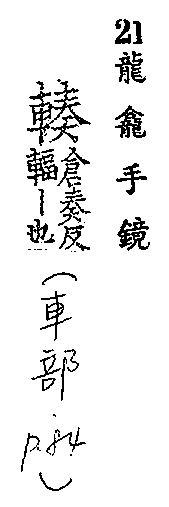 21龍龕手鏡
輳倉奏反
輻丨也
(車部 p.84)